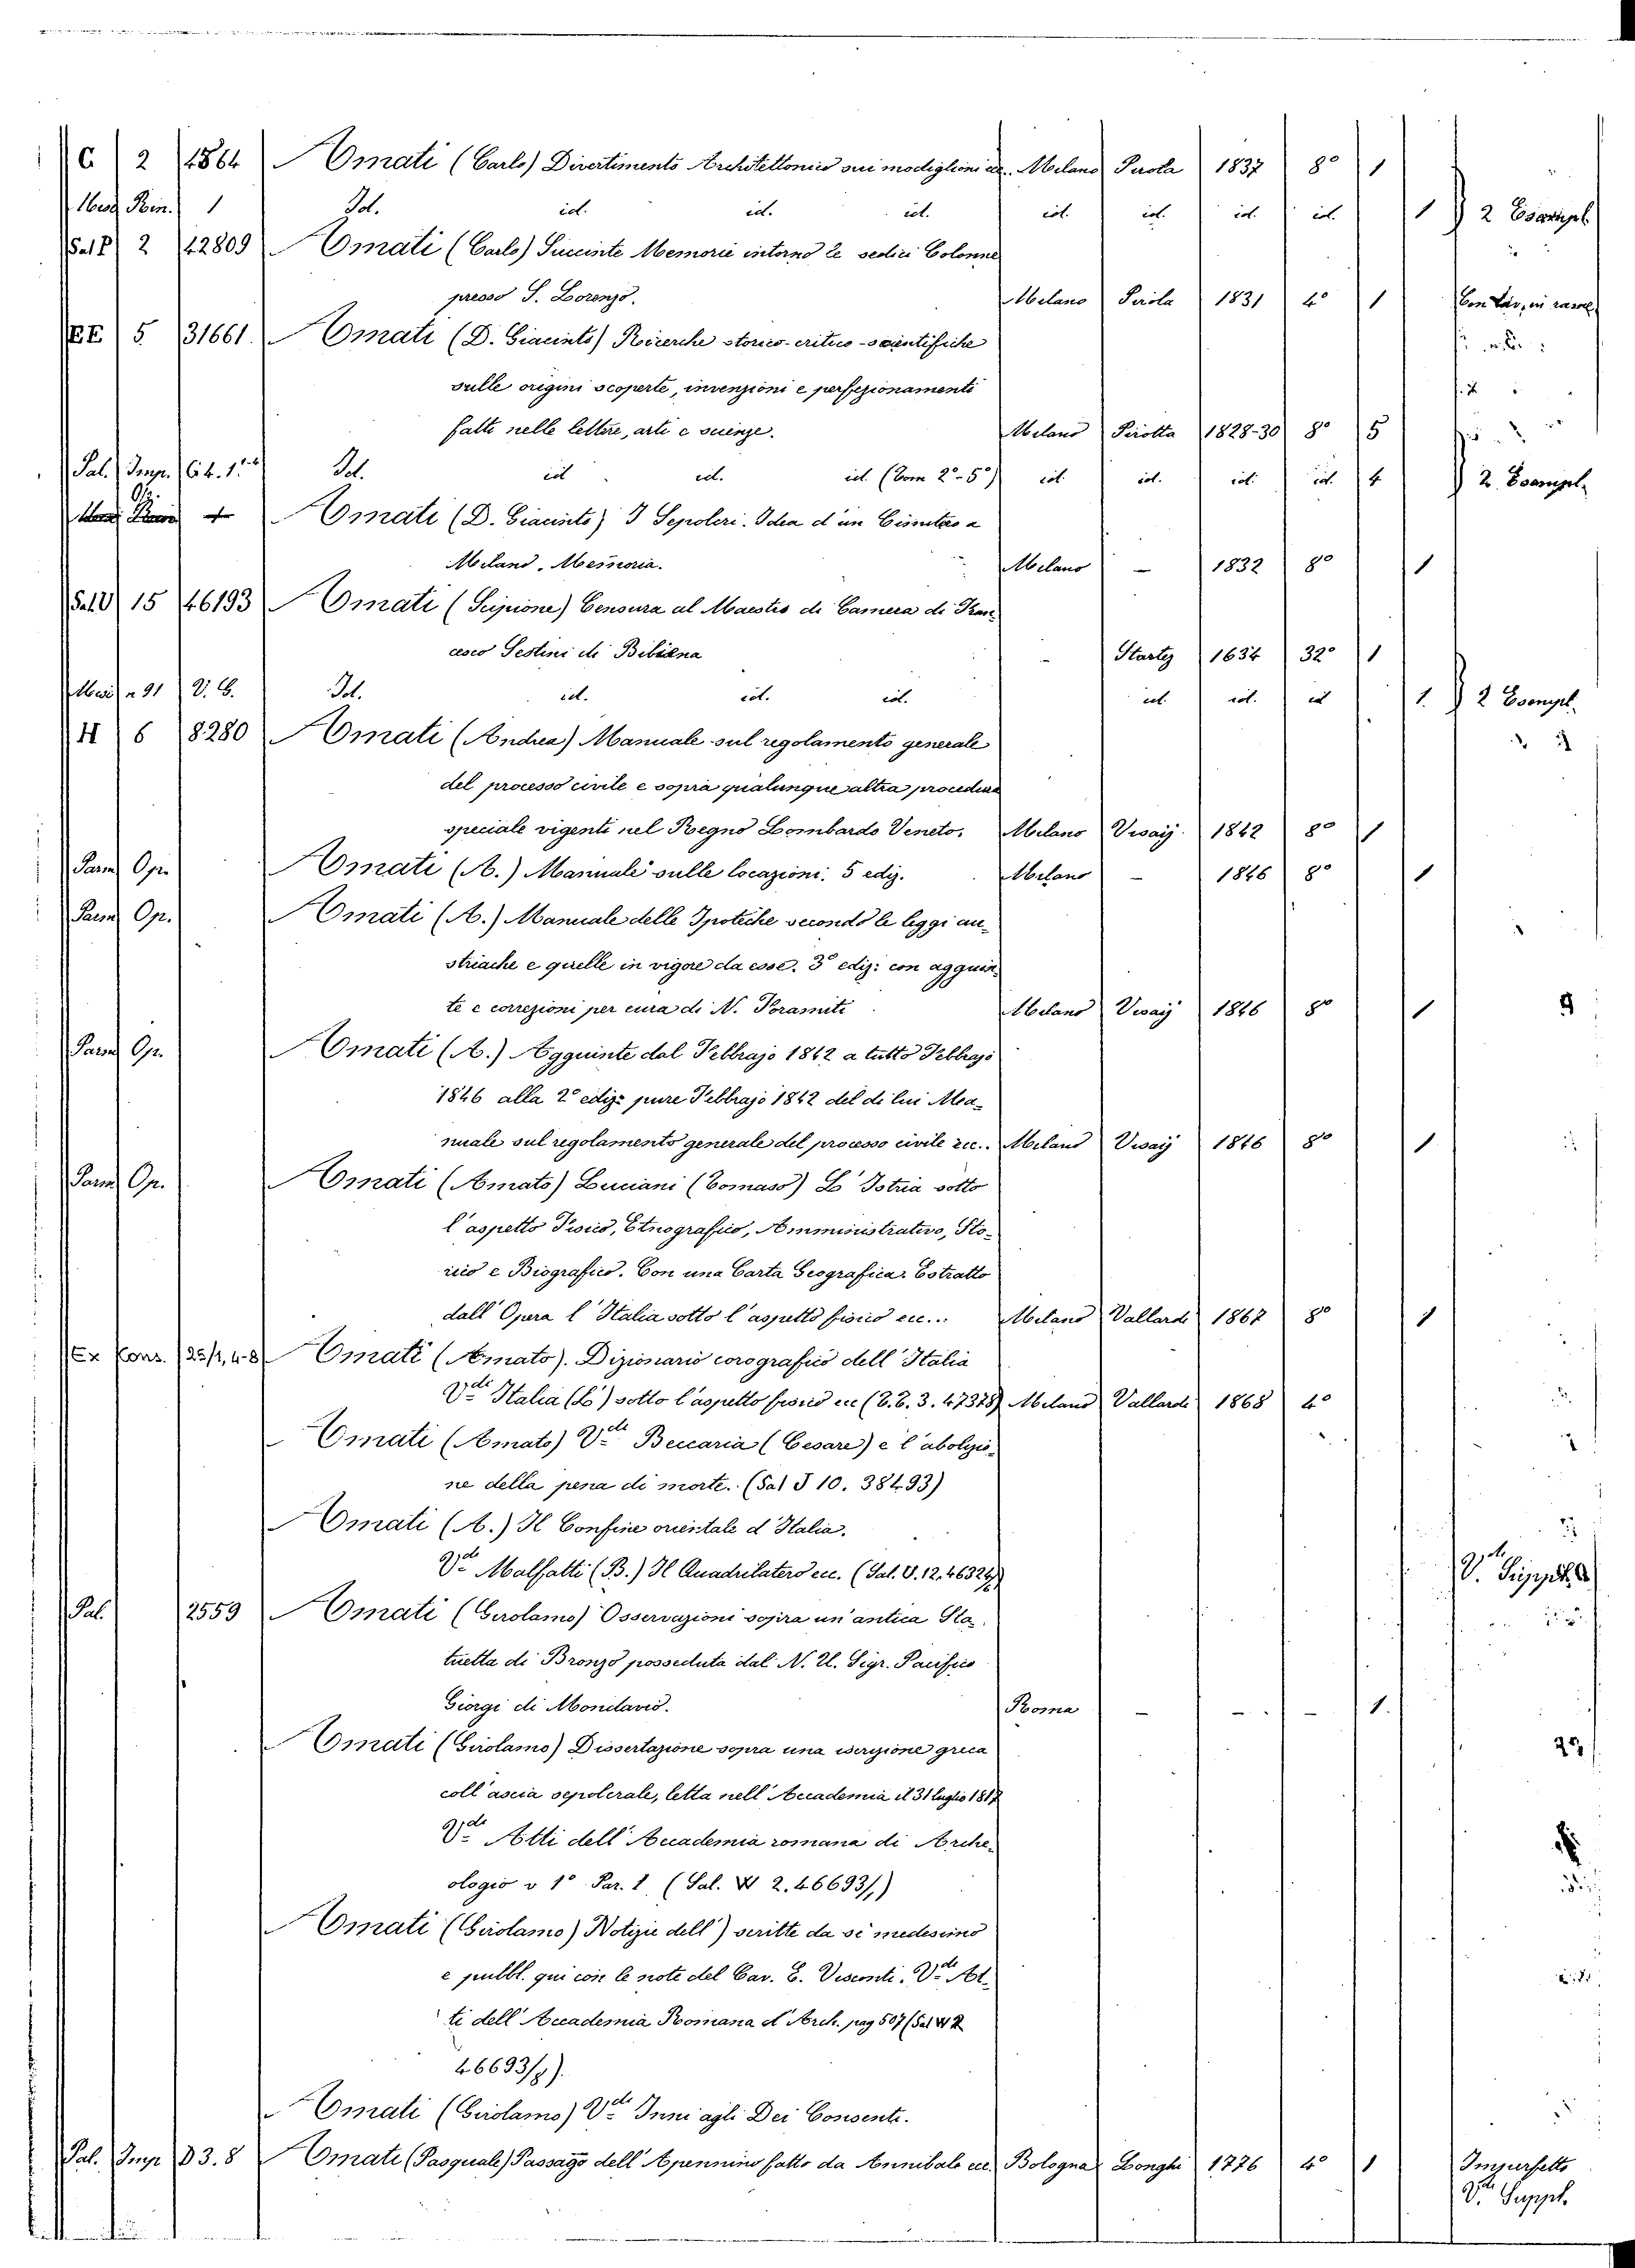 C 2 1864 Amati (Carlo) Divertimento Architettonico sui modiglioni ec. Milano Pirola 1837 8° 1
1 Id. id. id. id. id. id. id. id. 1 } 2 Esempl.
Sal P 2 42809 Amati (Carlo) Succinte Memorie intorno le sedici Colonne
presso S. Lorenzo. Milano Pirola 1831 4° 1 Con tav, in rame
EE 5 31661. Amati (D. Giacinto) Ricerche storico-critico-scientifiche
sulle origini scoperte, invenzioni e perfezionamenti
fatti nelle lettere, arti e scienze. Milano Pirotta 1828-30 8° 5
Pal. Imp. Id. id id. id. (Tom 2°-5°) id. id. id. id. 4 } 2. Esempl.
Amati (D. Giacinto) I Sepolcri. Idea d'un Cimitero a
Milano. Memoria. Milano - 1832 8° 1
Sal U 15 46193 Amati (Scipione) Censura al Maestro di Camera di Fran-
cesco Sestini di Bibiena - Startz 1634 32° 1
n 91 V. C. Id. id. id. id. id. id. id 1. } 2 Esempl.
H 6 8280 Amati (Andrea) Manuale sul regolamento generale
del processo civile e sopra qualunque altra procedura
speciale vigenti nel Regno Lombardo Veneto. Milano Visaij 1842 8° 1
Parm Op. Amati (A.) Manuale sulle locazioni. 5 ediz. Milano - 1846 8° 1
Parm Op. Amati (A.) Manuale delle Ipoteche secondo le leggi au-
striache e quelle in vigore da esse. 3ª ediz: con aggiun-
te e correzioni per cura di N. Foramiti Milano Visaij 1846 8° 1
Parm Op. Amati (A.) Aggiunte dal Febbrajo 1842 a tutto Febbrajo
1846 alla 2ª ediz: pure Febbrajo 1842 del di lui Ma-
nuale sul regolamento generale del processo civile ec.. Milano Visaij 1846 8° 1
Parm Op. Amati (Amato) Luciani (Tomaso) L'Istria sotto
l'aspetto Fisico, Etnografico, Amministrativo, Sto-
rico e Biografico. Con una Carta Geografica. Estratto
dall'Opera l'Italia sotto l'aspetto fisico ec... Milano Vallardi 1867 8° 1
Ex Cons. 25/1, 4-8 Amati (Amato). Dizionario corografico dell'Italia
V.di Italia (L') sotto l'aspetto fisico ec (C.C. 3. 47378) Milano Vallardi 1868 4°
Amati (Amato) V.di Beccaria (Cesare) e l'abolizio-
ne della pena di morte. (Sal J 10. 38493)
Amati (A.) Il Confine orientale d'Italia.
V.di Malfatti (B.) Il Quadrilatero ec. (Sal. V. 12. 46324)
Pal. 2559 Amati (Girolamo) Osservazioni sopra un'antica Sta-
tuetta di Bronzo posseduta dal N. U. Sigr. Pacifico
Giorgi di Mondavio. Roma - - - 1.
Amati (Girolamo) Dissertazione sopra una iscrizione greca
coll'ascia sepolcrale, letta nell'Accademia il 31 luglio 1817
V.di Atti dell'Accademia romana di Arche-
ologio v 1° Par. 1 (Sal. W 2. 46693/1)
Amati (Girolamo) Notizie dell') scritte da se medesimo
e pubbl. qui con le note del Cav. E. Visconti. V.di At-
ti dell'Accademia Romana d'Arch. pag 507 (Sal W 2
46693/7).
Amati (Girolamo) V.di Inni agli Dei Consenti.
Pal. Imp D3. 8 Amati (Pasquale) Passago dell'Apennino fatto da Annibale ec. Bologna Longhi 1776 4° 1 Imperfetto
V.di Suppl.